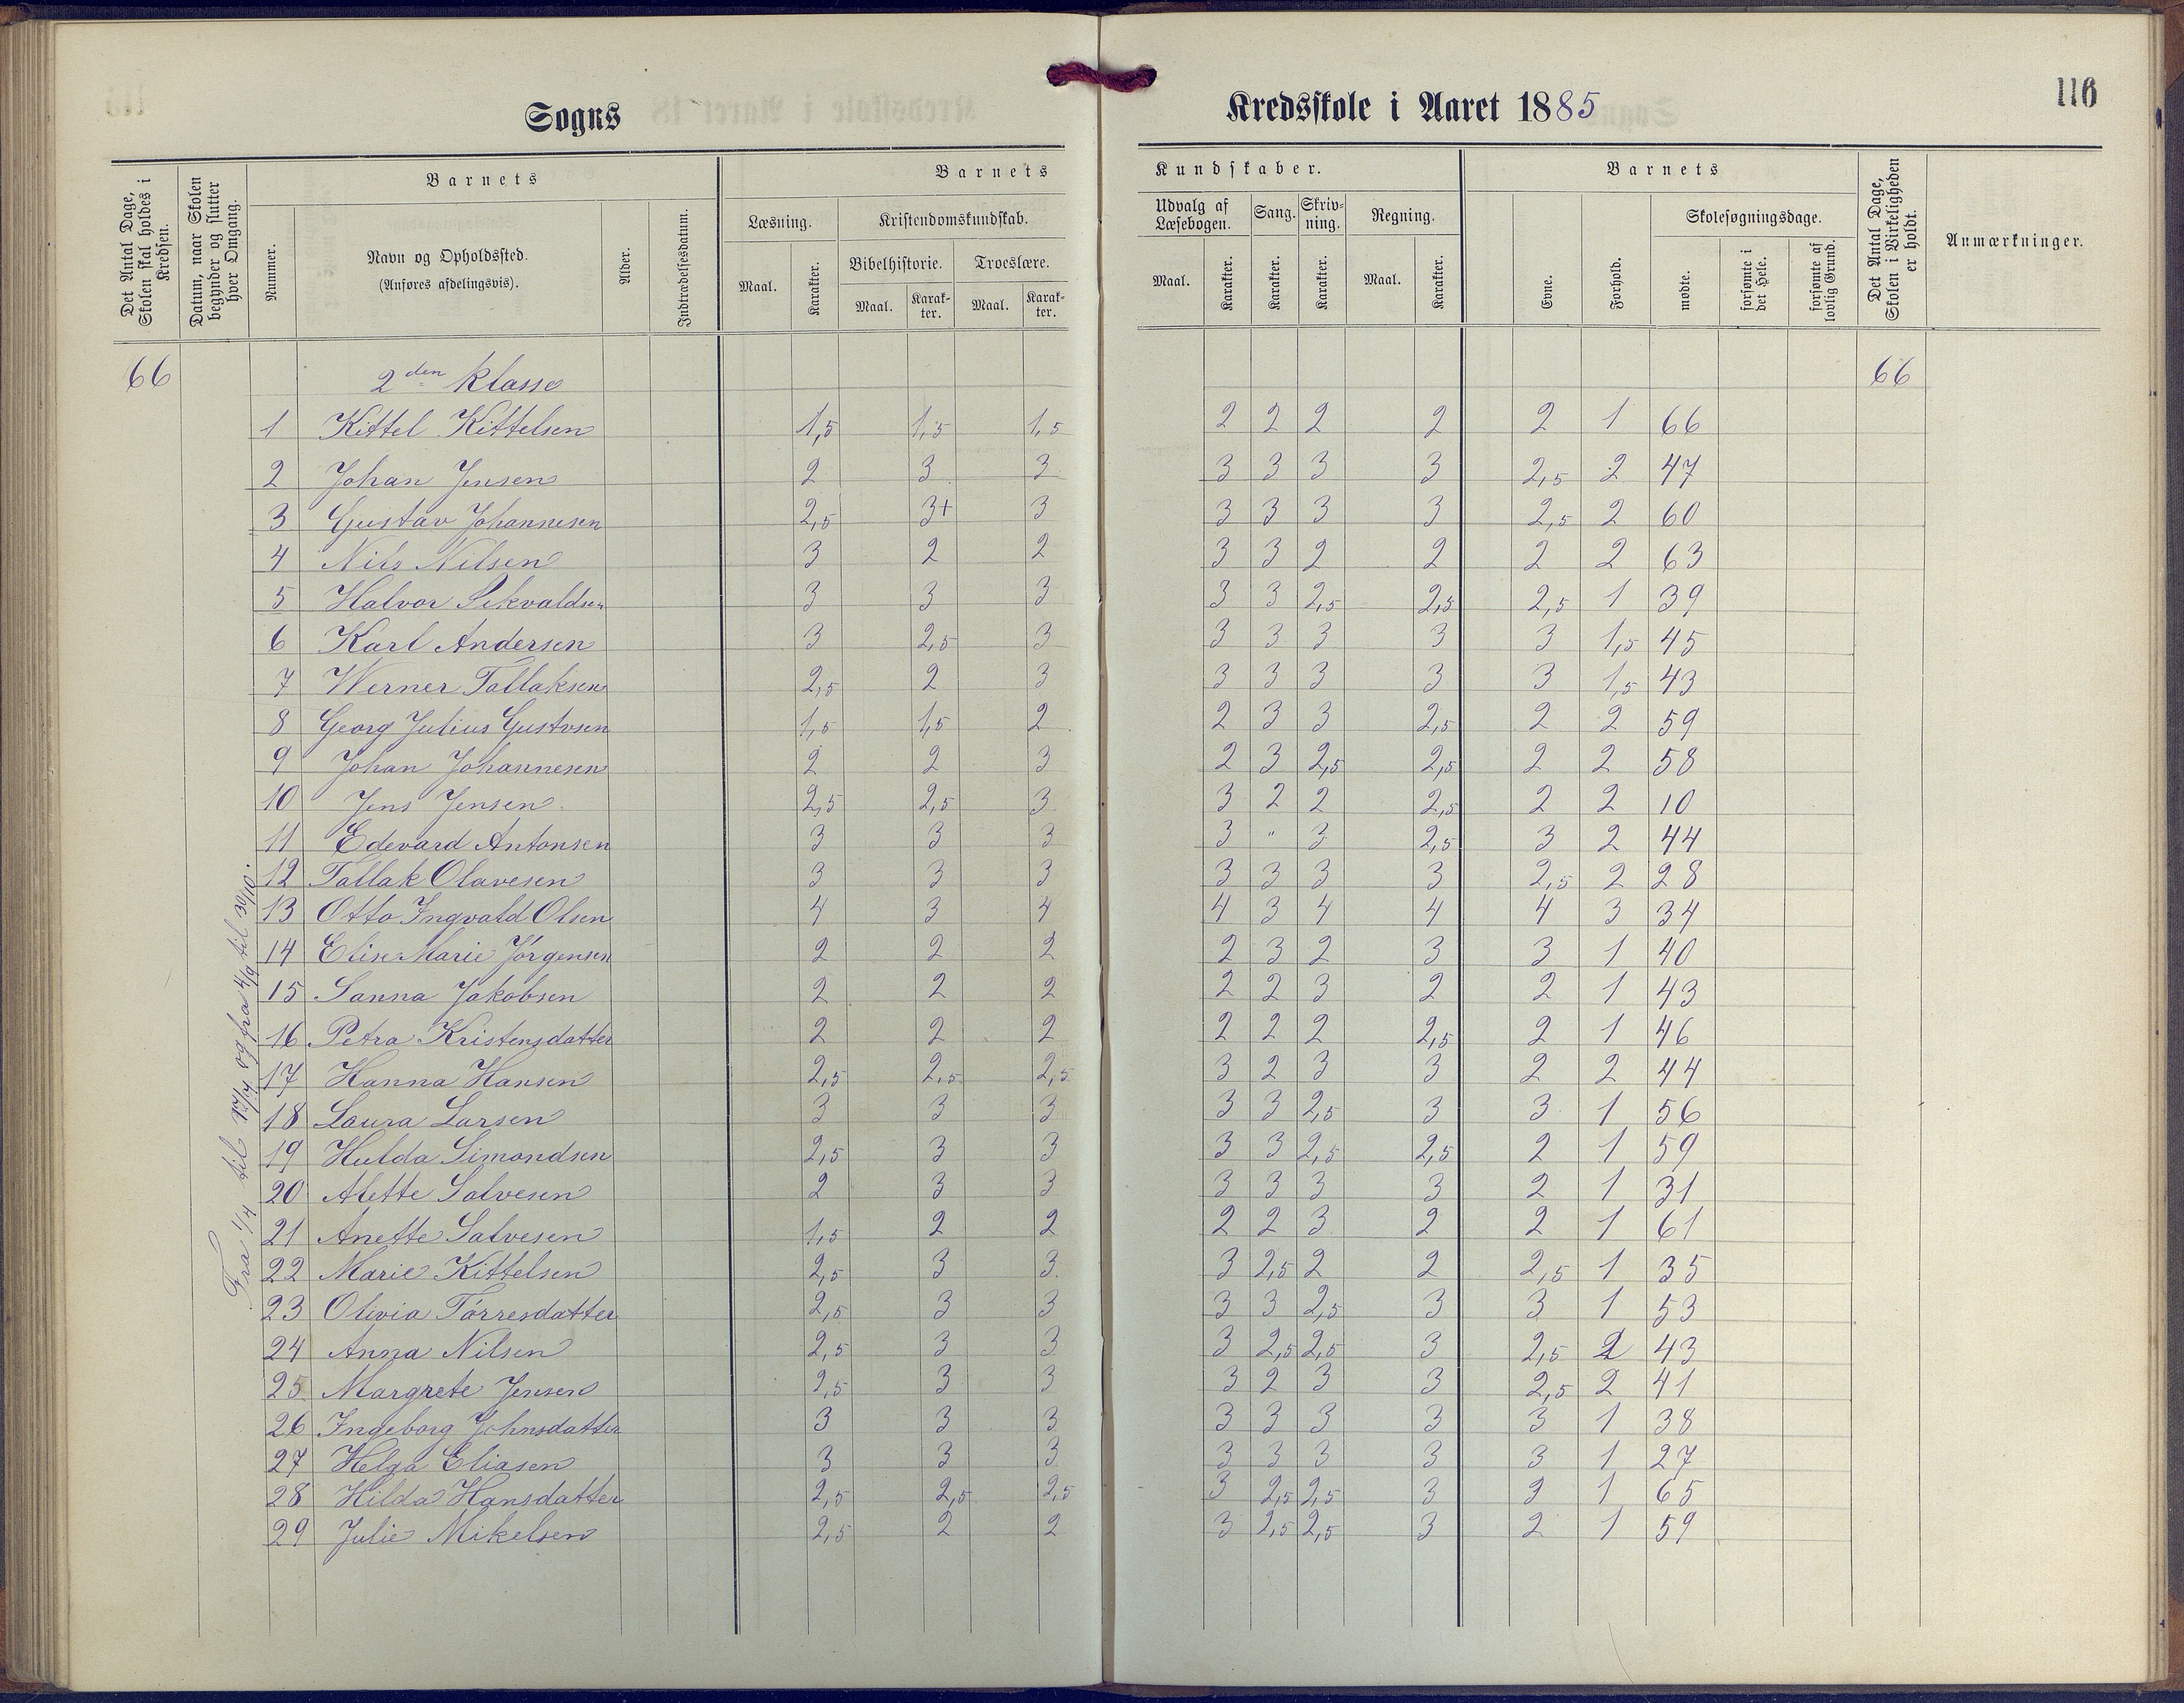 116
Sogns Kredsskole i Aaret 1885
Det Antal Dage, Skolen skal holdes i Kredsen.
Datum, naar Skolen begynder og slutter hver Omgang.
Barnets
Nummer.
Navn og Opholdssted.
(Anføres afdelingsvis).
Alder.
Indtrædelsesdatum.
Barnets Kundskaber.
Læsning.
Maal. Karakter.
Kristendomskundskab.
Bibelhistorie. Troeslære.
Maal. Karakter. Maal. Karakter.
Udvalg af Læsebogen.
Maal. Karakter.
Sang.
Karakter.
Skrivning.
Karakter.
Regning.
Maal. Karakter.
Barnets
Evne.
Forhold.
Skolesøgningsdage.
mødte.
forsømte i det Hele.
forsømte af lovlig Grund.
Det Antal Dage, Skolen i Virkeligheden er holdt.
Anmærkninger.
66 2den Klasse 66
Fra 1/4 til 17/4 og fra 4/9 til 30/10.
1 Kittel Kittelsen 1,5 1,5 1,5 2 2 2 2 2 1 66
2 Johan Jensen 2 3 3 3 3 3 3 2,5 2 47
3 Gustav Johannesen 2,5 3+ 3 3 3 3 3 2,5 2 60
4 Nils Nilsen 3 2 2 3 3 2 2 2 2 63
5 Halvor Sikvaldsen 3 3 3 3 3 2,5 2,5 2,5 1 39
6 Karl Andersen 3 2,5 3 3 3 3 3 3 1,5 45
7 Werner Tallaksen 2,5 2 3 3 3 3 3 3 1,5 43
8 Georg Julius Gustvsen 1,5 1,5 2 2 3 3 2,5 2 2 59
9 Johan Johannesen 2 2 3 2 3 2,5 2,5 2 2 58
10 Jens Jensen 2,5 2,5 3 3 2 2 2,5 2 2 10
11 Edevard Antonsen 3 3 3 3 " 3 2,5 3 2 44
12 Tallak Olavesen 3 3 3 3 3 3 3 2,5 2 28
13 Otto Ingvald Olsen 4 3 4 4 3 4 4 4 3 34
14 Elise Marie Jørgensen 2 2 2 2 3 2 3 3 1 40
15 Sanna Jakobsen 2 2 2 2 2 3 2 2 1 43
16 Petra Kristensdatter 2 2 2 2 2 2 2,5 2 1 46
17 Hanna Hansen 2,5 2,5 2,5 3 2 3 3 2 2 44
18 Laura Larsen 3 3 3 3 3 2,5 3 3 1 56
19 Hulda Simondsen 2,5 3 3 3 3 2,5 2,5 2 1 59
20 Alette Salvesen 2 3 3 3 3 3 3 2 1 31
21 Anette Salvesen 1,5 2 2 2 2 3 2 2 1 61
22 Marie Kittelsen 2,5 3 3 3 2,5 2 2 2,5 1 35
23 Olivia Tørresdatter 2,5 3 3 3 3 2,5 3 3 1 53
24 Anna Nilsen 2,5 3 3 3 2,5 2,5 3 2,5 2 43
25 Margrete Jensen 2,5 3 3 3 2 3 3 2,5 2 41
26 Ingeborg Johnsdatter 3 3 3 3 3 3 3 3 1 38
27 Helga Eliasen 3 3 3 3 3 3 3 3 1 27
28 Hilda Hansdatter 2,5 2,5 2,5 3 2,5 2,5 3 1 65
29 Julie Mikelsen 2,5 2 2 3 2,5 2,5 3 2 1 59